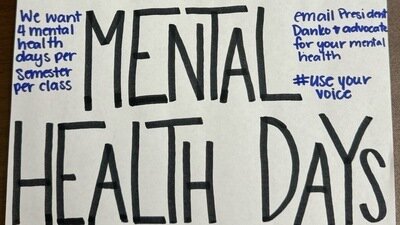 We want
4 mental
health
days per
semester
per class
MENTAL
email President
Danko & advocate
for your mental
health
#use your
voice
HEALTH DAYS